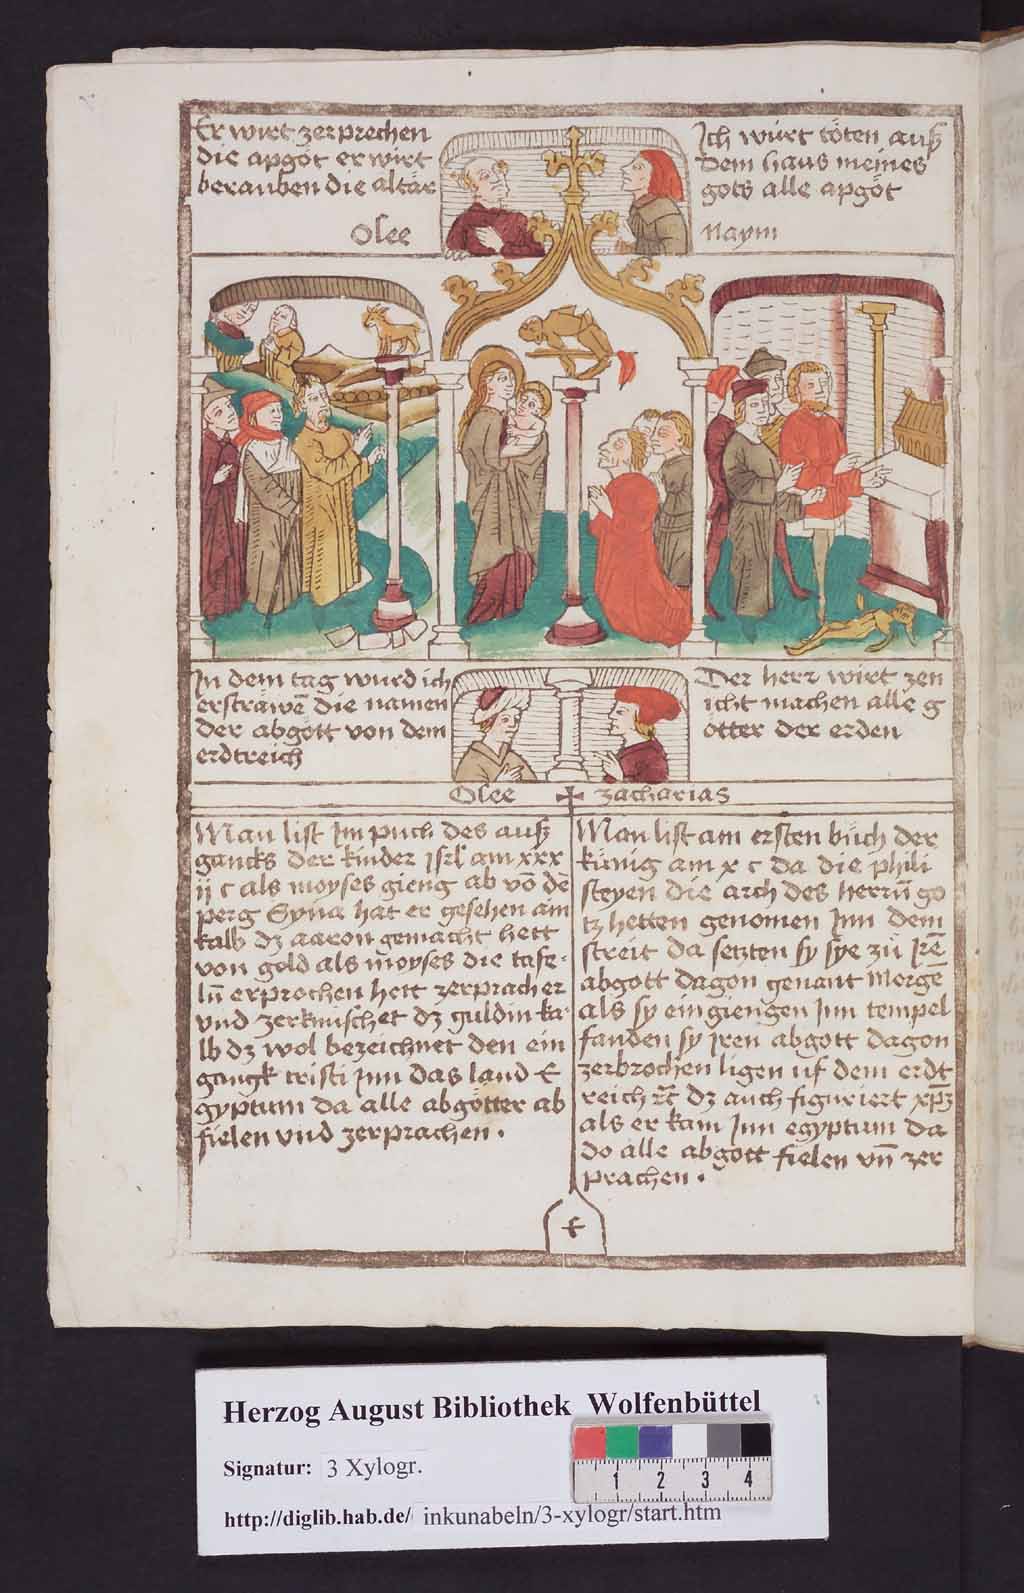 Er wirt zerprechen
die apgöt er wirt
berauben die altär
Olee
Ich würt töten auß
dem haus meines
gots alle apgöt
Naym
In dem tag wurd ich
erströwē die namen
der abgött von dem
erdtreich
Der herr wirt zen
icht machen alle g
ötter der erden
Olee zacharias
Man list Im puch des auß
gancks der kinder jsrl am xxx
ij c als moyses gieng ab vō dē
perg Syna hat er gesehen ain
kalb dz aaron gemacht hett
von gold als moyses die tafe-
ln̄ erprochen hett zerprach er
vnd zerknischet dz guldin ka-
lb dz wol bezeichnet den ein
gangk cristi Inn das land E
gyptum da alle abgötter ab
fielen vnd zerprachen .
Man list am ersten büch der
künig am x c da die phili
steyen die arch des herrn̄ go
tz hetten genomen Inn dem
streit da setzten sy sye zů Irē
abgott dagon genant Morge
als sy eingiengen Inn tempel
fanden sy Iren abgott dagon
zerbrochen ligen uf dem erdt
reich rc̄ dz auch figuriert xp̄z
als er kam Inn egyptum da
do alle abgott fielen vn̄ zer
prachen .
f
Herzog August Bibliothek Wolfenbüttel
Signatur: 3 Xylogr.
1 2 3 4
http://diglib.hab.de/ inkunabeln/3-xylogr/start.htm